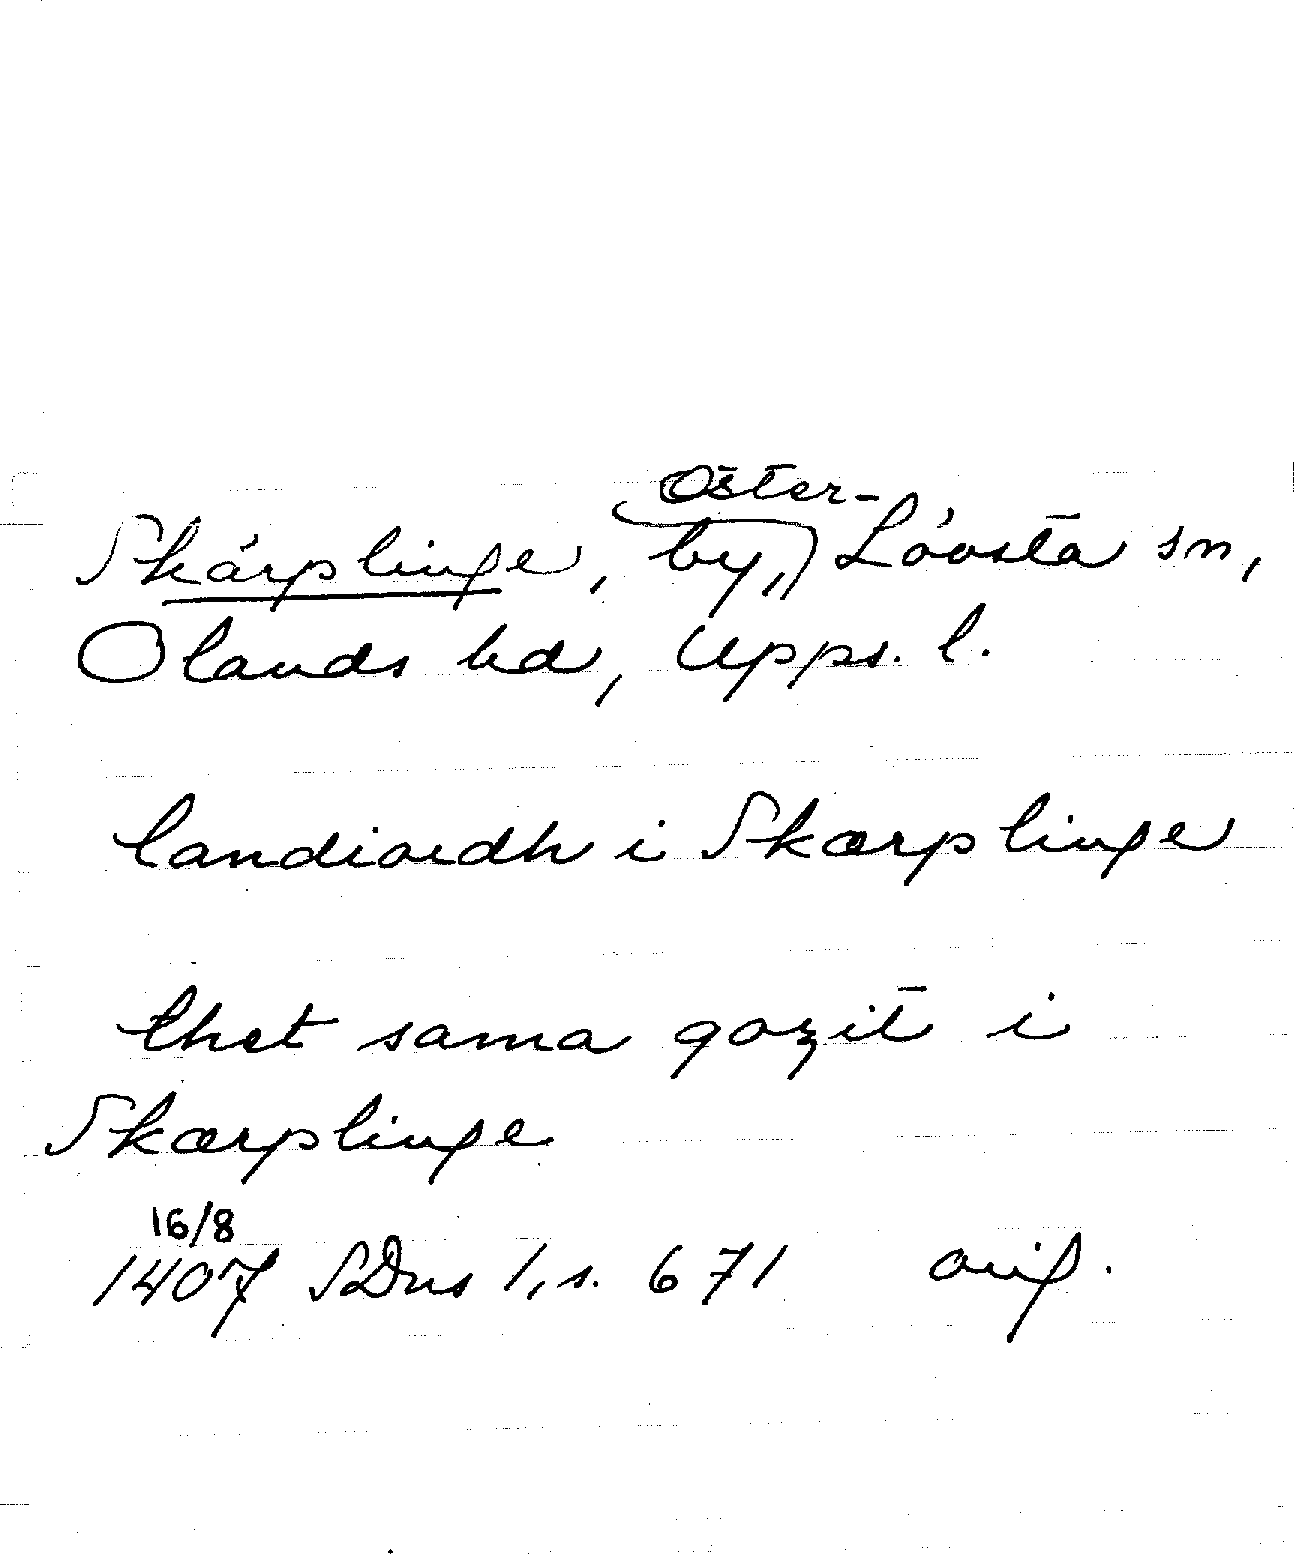 Öster-
Skärplinge, by,) Lövsta sn,
Olands hd, Upps. l.
landioædh i Skærplinge
thet sama gozit i
Skærplinge
16/8
1407 SDns 1, s. 671 orig.